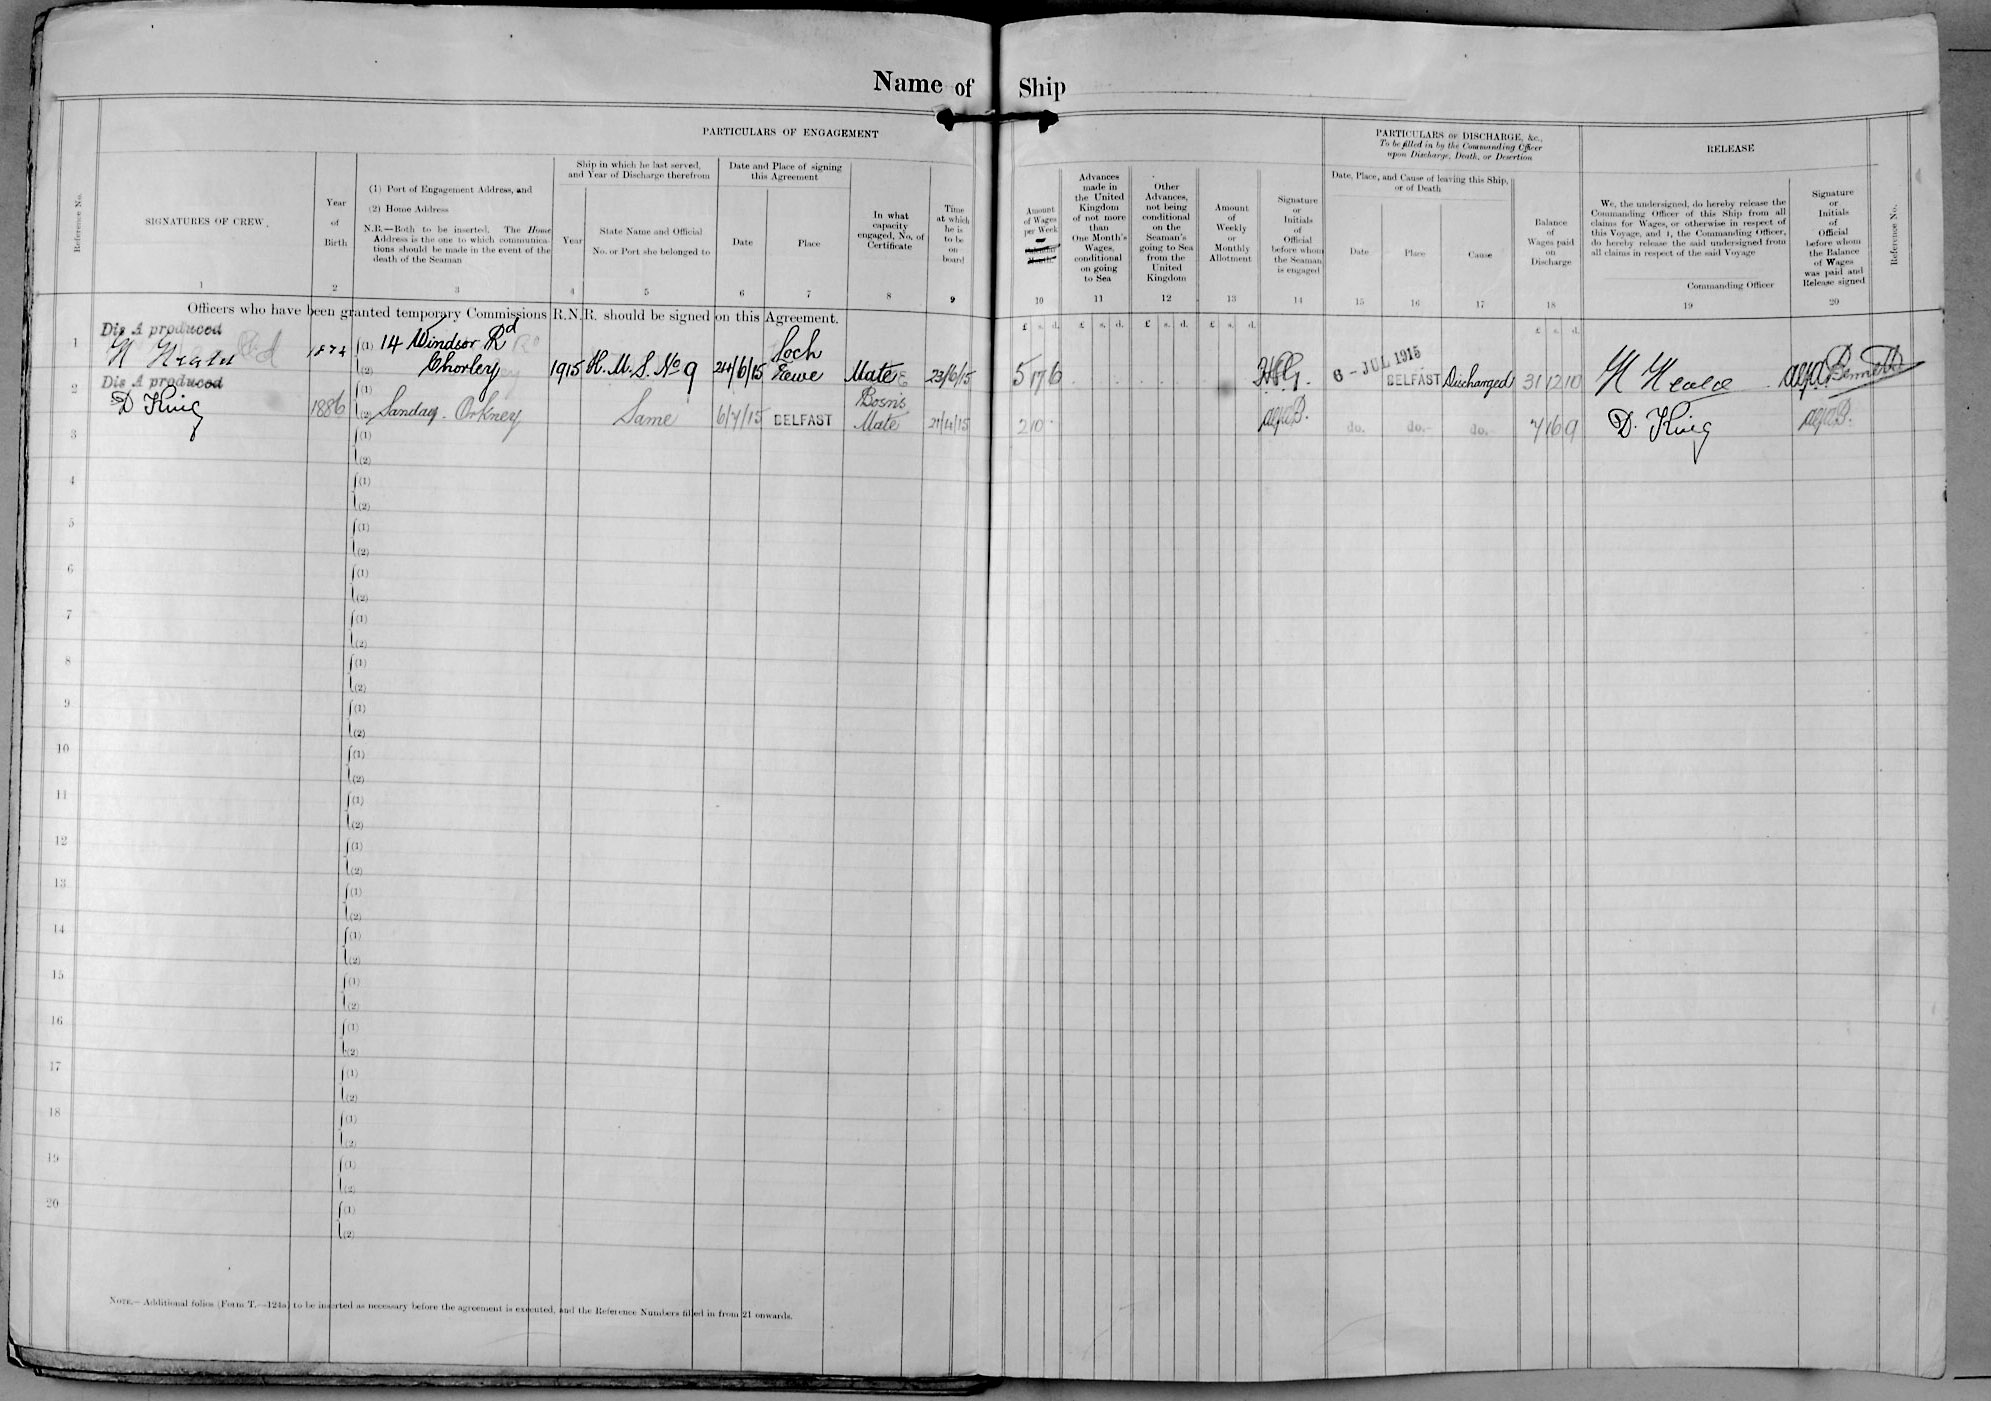 Name of Ship
PARTICULARS OF ENGAGEMENT
PARTICULARS OF DISCHARGE, &c.,
To be filled in by the Commanding Officer
upon Discharge, Death, or Desertion
RELEASE
Reference No.
SIGNATURES OF CREW.
1
Year
of
Birth
2
(1) Port of Engagement Address, and
(2) Home Address
N.B.—Both to be inserted. The Home
Address is the one to which communica-
tions should be made in the event of the
death of the Seaman
3
Ship in which he last served,
and Year of Discharge therefrom
Year
4
State Name and Official
No. or Port she belonged to
5
Date and Place of signing
this Agreement
Date
6
Place
7
In what
capacity
engaged, No. of
Certificate
8
Time
at which
he is
to be
on
board
9
Amount
of Wages
per Week
Month.
10
Advances
made in
the United
Kingdom
of not more
than
One Month's
Wages,
conditional
on going
to Sea
11
Other
Advances,
not being
conditional
on the
Seaman's
going to Sea
from the
United
Kingdom
12
Amount
of
Weekly
or
Monthly
Allotment
13
Signature
or
Initials
of
Official
before whom
the Seaman
is engaged
14
Date, Place, and Cause of leaving this Ship,
or of Death
Date
15
Place
16
Cause
17
Balance
of
Wages paid
on
Discharge
18
We, the undersigned, do hereby release the
Commanding Officer of this Ship from all
claims for Wages, or otherwise in respect of
this Voyage, and I, the Commanding Officer,
do hereby release the said undersigned from
all claims in respect of the said Voyage
Commanding Officer
19
Signature
or
Initials
of
Official
before whom
the Balance
of Wages
was paid and
Release signed
20
Reference No.
Officers who have been granted temporary Commissions R.N.R. should be signed on this Agreement.
£ s. d. £ s. d. £ s. d. £ s. d. £ s. d.
Dis A produced
1 N Heald (1) 14 Windsor Rd
(2) Chorley 1915 H. M. S. No 9 24/6/15 Loch Ewe Mate 23/6/15 5 17 6 6 - JUL 1915 BELFAST Discharged 31 12 10 N Heald Bennett
Dis A produced
2 D King 1886 (1)
(2) Sanday. Orkney Same BELFAST Bosn's Mate 2 10 do. do. do. 7 16 9 D. King
3 (1)
(2)
4 (1)
(2)
5 (1)
(2)
6 (1)
(2)
7 (1)
(2)
8 (1)
(2)
9 (1)
(2)
10 (1)
(2)
11 (1)
(2)
12 (1)
(2)
13 (1)
(2)
14 (1)
(2)
15 (1)
(2)
16 (1)
(2)
17 (1)
(2)
18 (1)
(2)
19 (1)
(2)
20 (1)
(2)
NOTE.—Additional folios (Form T.—124a) to be inserted as necessary before the agreement is executed, and the Reference Numbers filled in from 21 onwards.